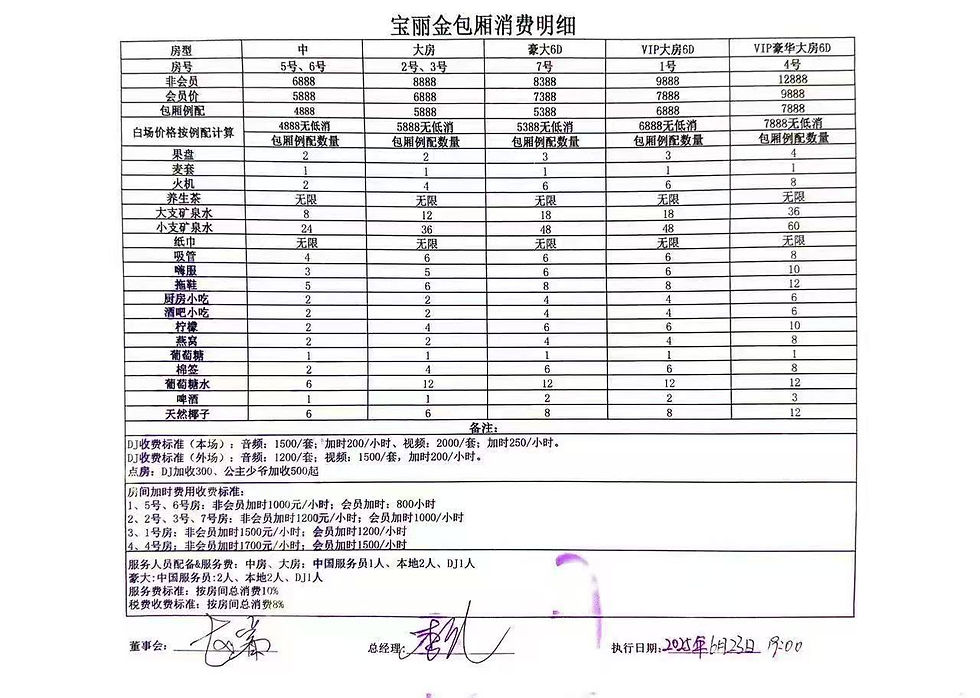 宝丽金包厢消费明细
房型 中 大房 豪大6D VIP大房6D VIP豪华大房6D
房号 5号、6号 2号、3号 7号 1号 4号
非会员 6888 8888 8388 9888 12888
会员价 5888 6888 7388 7888 9888
包厢例配 4888 5888 5388 6888 7888
白场价格按例配计算 4888无低消 5888无低消 5388无低消 6888无低消 7888无低消
包厢例配数量 包厢例配数量 包厢例配数量 包厢例配数量 包厢例配数量
果盘 2 2 3 3 4
麦套 1 1 1 1 1
火机 2 4 6 6 8
养生茶 无限 无限 无限 无限 无限
大支矿泉水 8 12 18 18 36
小支矿泉水 24 36 48 48 60
纸巾 无限 无限 无限 无限 无限
吸管 4 6 6 6 8
嗨服 3 5 6 6 10
拖鞋 5 6 8 8 12
厨房小吃 2 2 4 4 6
酒吧小吃 2 2 4 4 6
柠檬 2 4 6 6 10
燕窝 2 2 4 4 8
葡萄糖 1 1 1 1 1
棉签 2 4 6 6 8
葡萄糖水 6 12 12 12 12
啤酒 1 1 2 2 3
天然椰子 6 6 8 8 12
备注:
DJ收费标准（本场）: 音频: 1500/套; 加时200/小时、视频: 2000/套; 加时250/小时。
DJ收费标准（外场）: 音频: 1200/套; 视频: 1500/套, 加时200/小时。
点房: DJ加收300、公主少爷加收500起
房间加时费用收费标准:
1、5号、6号房: 非会员加时1000元/小时; 会员加时: 800小时
2、2号、3号、7号房: 非会员加时1200元/小时; 会员加时1000/小时
3、1号房: 非会员加时1500元/小时; 会员加时1200/小时
4、4号房: 非会员加时1700元/小时; 会员加时1500/小时
服务人员配备&服务费: 中房、大房: 中国服务员1人、本地2人、DJ1人
豪大:中国服务员:2人、本地2人、DJ1人
服务费标准: 按房间总消费10%
税费收费标准: 按房间总消费8%
董事会: 总经理: 执行日期: 2025年6月23日 19:00